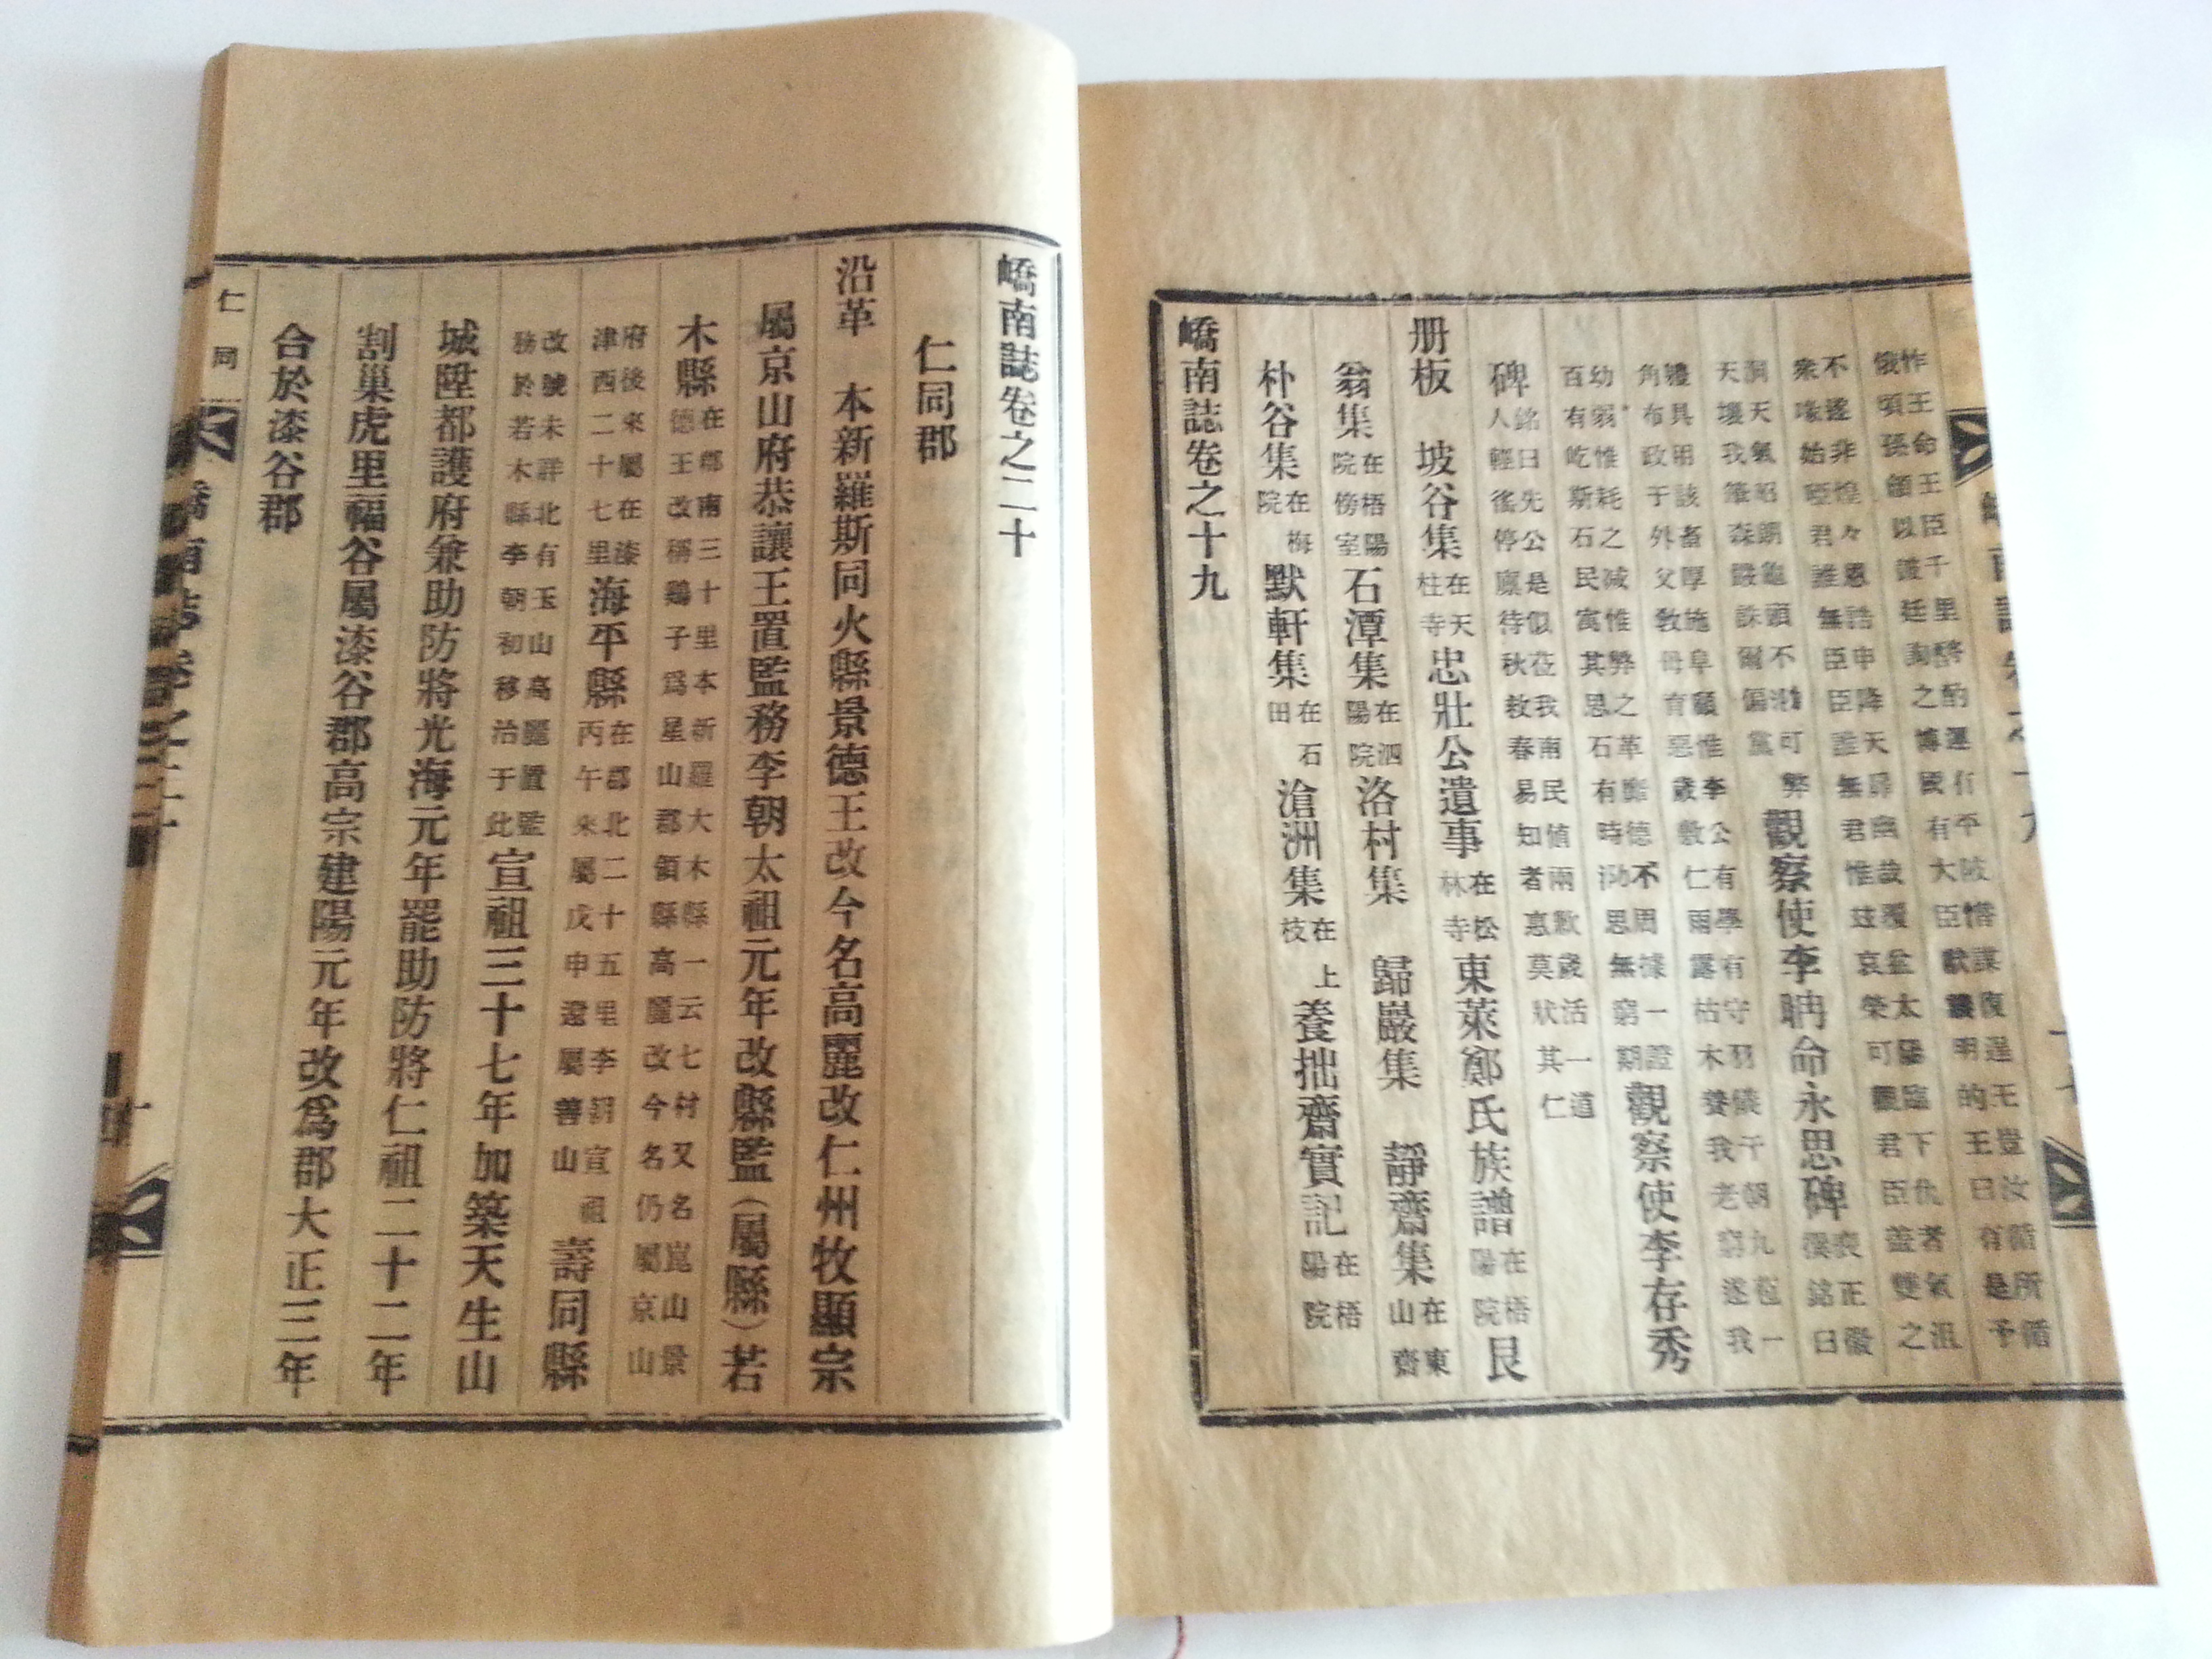 王命王臣千里酌運有平陂謀復逞王豈汝循所循
俄頃以詖廷詢之博國有大臣猷明的王曰有是予
不遂非惶々恩誥申降天幽哉覆盆太陽臨下仇者氣沮
衆喙始啞君誰無臣臣誰無君惟玆哀榮可觀君臣盖雙之
洞天氣昭朗龜頭不泐可弊
天壤我筆森嚴誅爾偏黨
觀察使李聃命永思碑
正徽
撰銘曰
禮具明該畜厚施阜顧惟李公有學有守羽儀千朝九苞一
角布政于外父敎母育惡歲敷仁雨露枯木養我老窮遂我
幼弱惟耗之减惟弊之革德不周據一證
百有屹斯石民寓其思石有時泐思無窮期
觀察使李存秀
碑
銘曰先公是似莅我南民値兩歉歲活一道
人輕徭停廩待秋救春易知者惠莫狀其仁
册板 坡谷集 在天柱寺 忠壯公遺事 在松林寺 東萊鄭氏族譜 在梧陽院 艮
翁集 在梧陽院傍室 石潭集 在泗陽院 洛村集 歸巖集 靜齋集 在東山齋
朴谷集 在梅院 默軒集 在石田 滄洲集 在上枝 養拙齋實記 在梧陽院
嶠南誌卷之十九
嶠南誌卷之二十
仁同郡
沿革 本新羅斯同火縣景德王改今名高麗改仁州牧顯宗
屬京山府恭讓王置監務李朝太祖元年改縣監(屬縣)若
木縣
在郡南三十里本新羅大木縣一云七村又名崑山景
德王改稱鷄子爲星山郡領縣高麗改今名仍屬京山
府後來屬在漆
津西二十七里
海平縣
在郡北二十五里李朝宣祖
丙午來屬戊申還屬善山
壽同縣
改號未詳北有玉山高麗置監
務於若木縣李朝初移治于此
宣祖三十七年加築天生山
城陞都護府兼助防將光海元年罷助防將仁祖二十二年
割巢虎里福谷屬漆谷郡高宗建陽元年改爲郡大正三年
合於漆谷郡
仁同
嶠南誌卷之二十